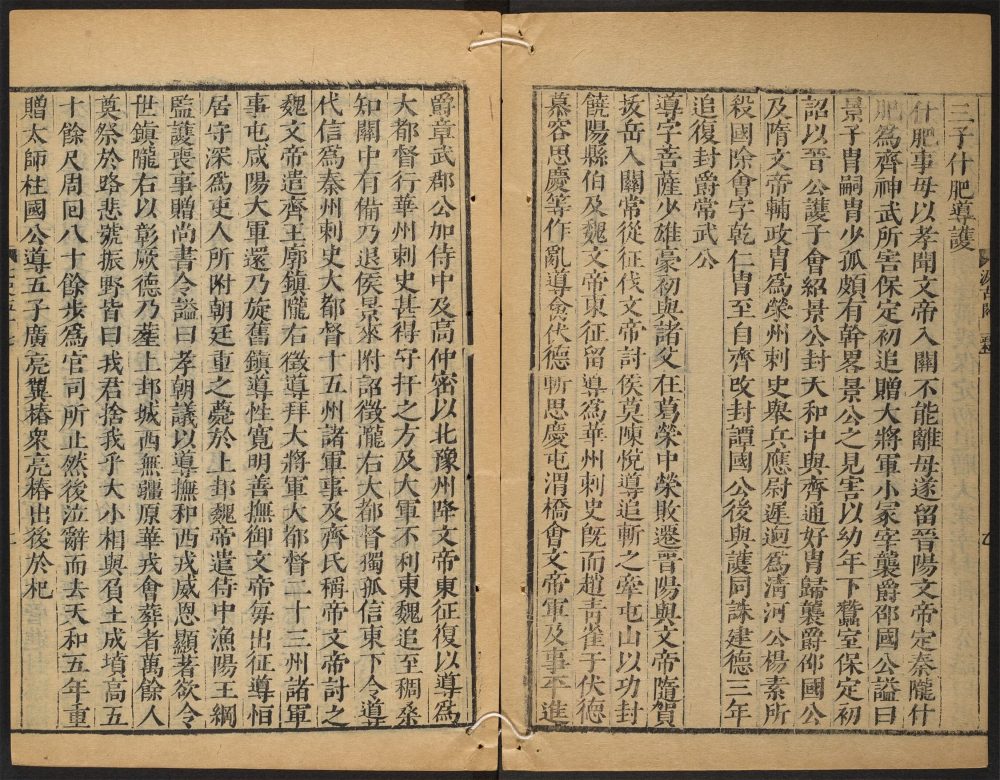 三子什肥導護
什肥事母以孝聞文帝入關不能離母遂留晉陽文帝定秦隴什
肥為齊神武所害保定初追贈大將軍小冢宰襲爵邵國公謚曰
景子胄嗣胄少孤頗有幹畧景公之見害以幼年下蠶室保定初
詔以晉公護子會紹景公封天和中與齊通好胄歸襲爵邵國公
及隋文帝輔政胄為滎州刺史舉兵應尉遲迥為清河公楊素所
殺國除會字乾仁胄至自齊改封譚國公後與護同誅建德三年
追復封爵常武公
導字菩薩少雄豪初與諸父在葛榮中榮敗遷晉陽與文帝隨賀
拔岳入關常從征伐文帝討侯莫陳悅導追斬之牽屯山以功封
饒陽縣伯及魏文帝東征留導為華州刺史旣而趙青雀于伏德
慕容思慶等作亂導禽伏德斬思慶屯渭橋會文帝軍及事平進
爵章武郡公加侍中及高仲密以北豫州降文帝東征復以導為
大都督行華州刺史甚得守扞之方及大軍不利東魏追至稠桑
知關中有備乃退侯景來附詔徵隴右大都督獨孤信東下令導
代信為秦州刺史大都督十五州諸軍事及齊氏稱帝文帝討之
魏文帝遣齊王廓鎮隴右徵導拜大將軍大都督二十三州諸軍
事屯咸陽大軍還乃旋舊鎮導性寬明善撫御文帝每出征導恒
居守深為吏人所附朝廷重之薨於上邽魏帝遣侍中漁陽王綱
監護喪事贈尚書令謚曰孝朝議以導撫和西戎威恩顯著欲令
世鎮隴右以彰厥德乃葬上邽城西無疆原華戎會葬者萬餘人
奠祭於路悲號振野皆曰我君捨我乎大小相與負土成墳高五
十餘尺周回八十餘步為官司所止然後泣辭而去天和五年重
贈太師柱國公導五子廣亮翼椿眾亮椿出後於杞